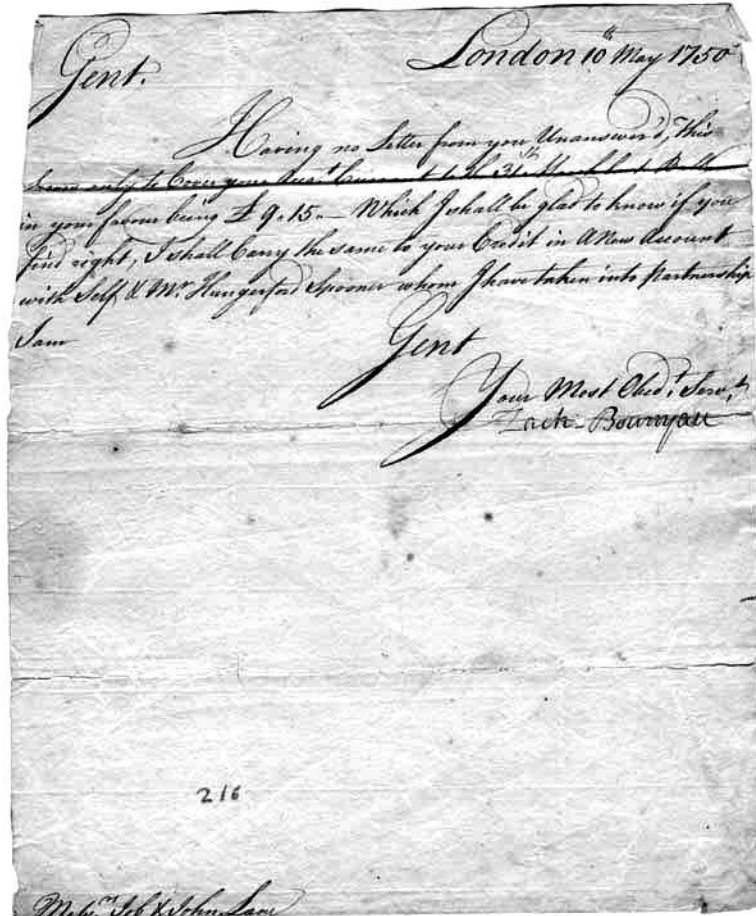 London 10th May 1750
Gent.
Having no Letter from you Unanswer'd, This
Serves only to Cover your Acct Currant to the 31th March last Balle
in your favour being £ 9.15.— Which I shall be glad to know if you
find right, I shall Carry the same to your Credit in A New Account
with Self & Mr. Hungerford Spooner whom I have taken into Partnership
I am
Gent
Your Most Obedt. Servt.
Zach. Bournyau
216
Messrs Job & John Lane